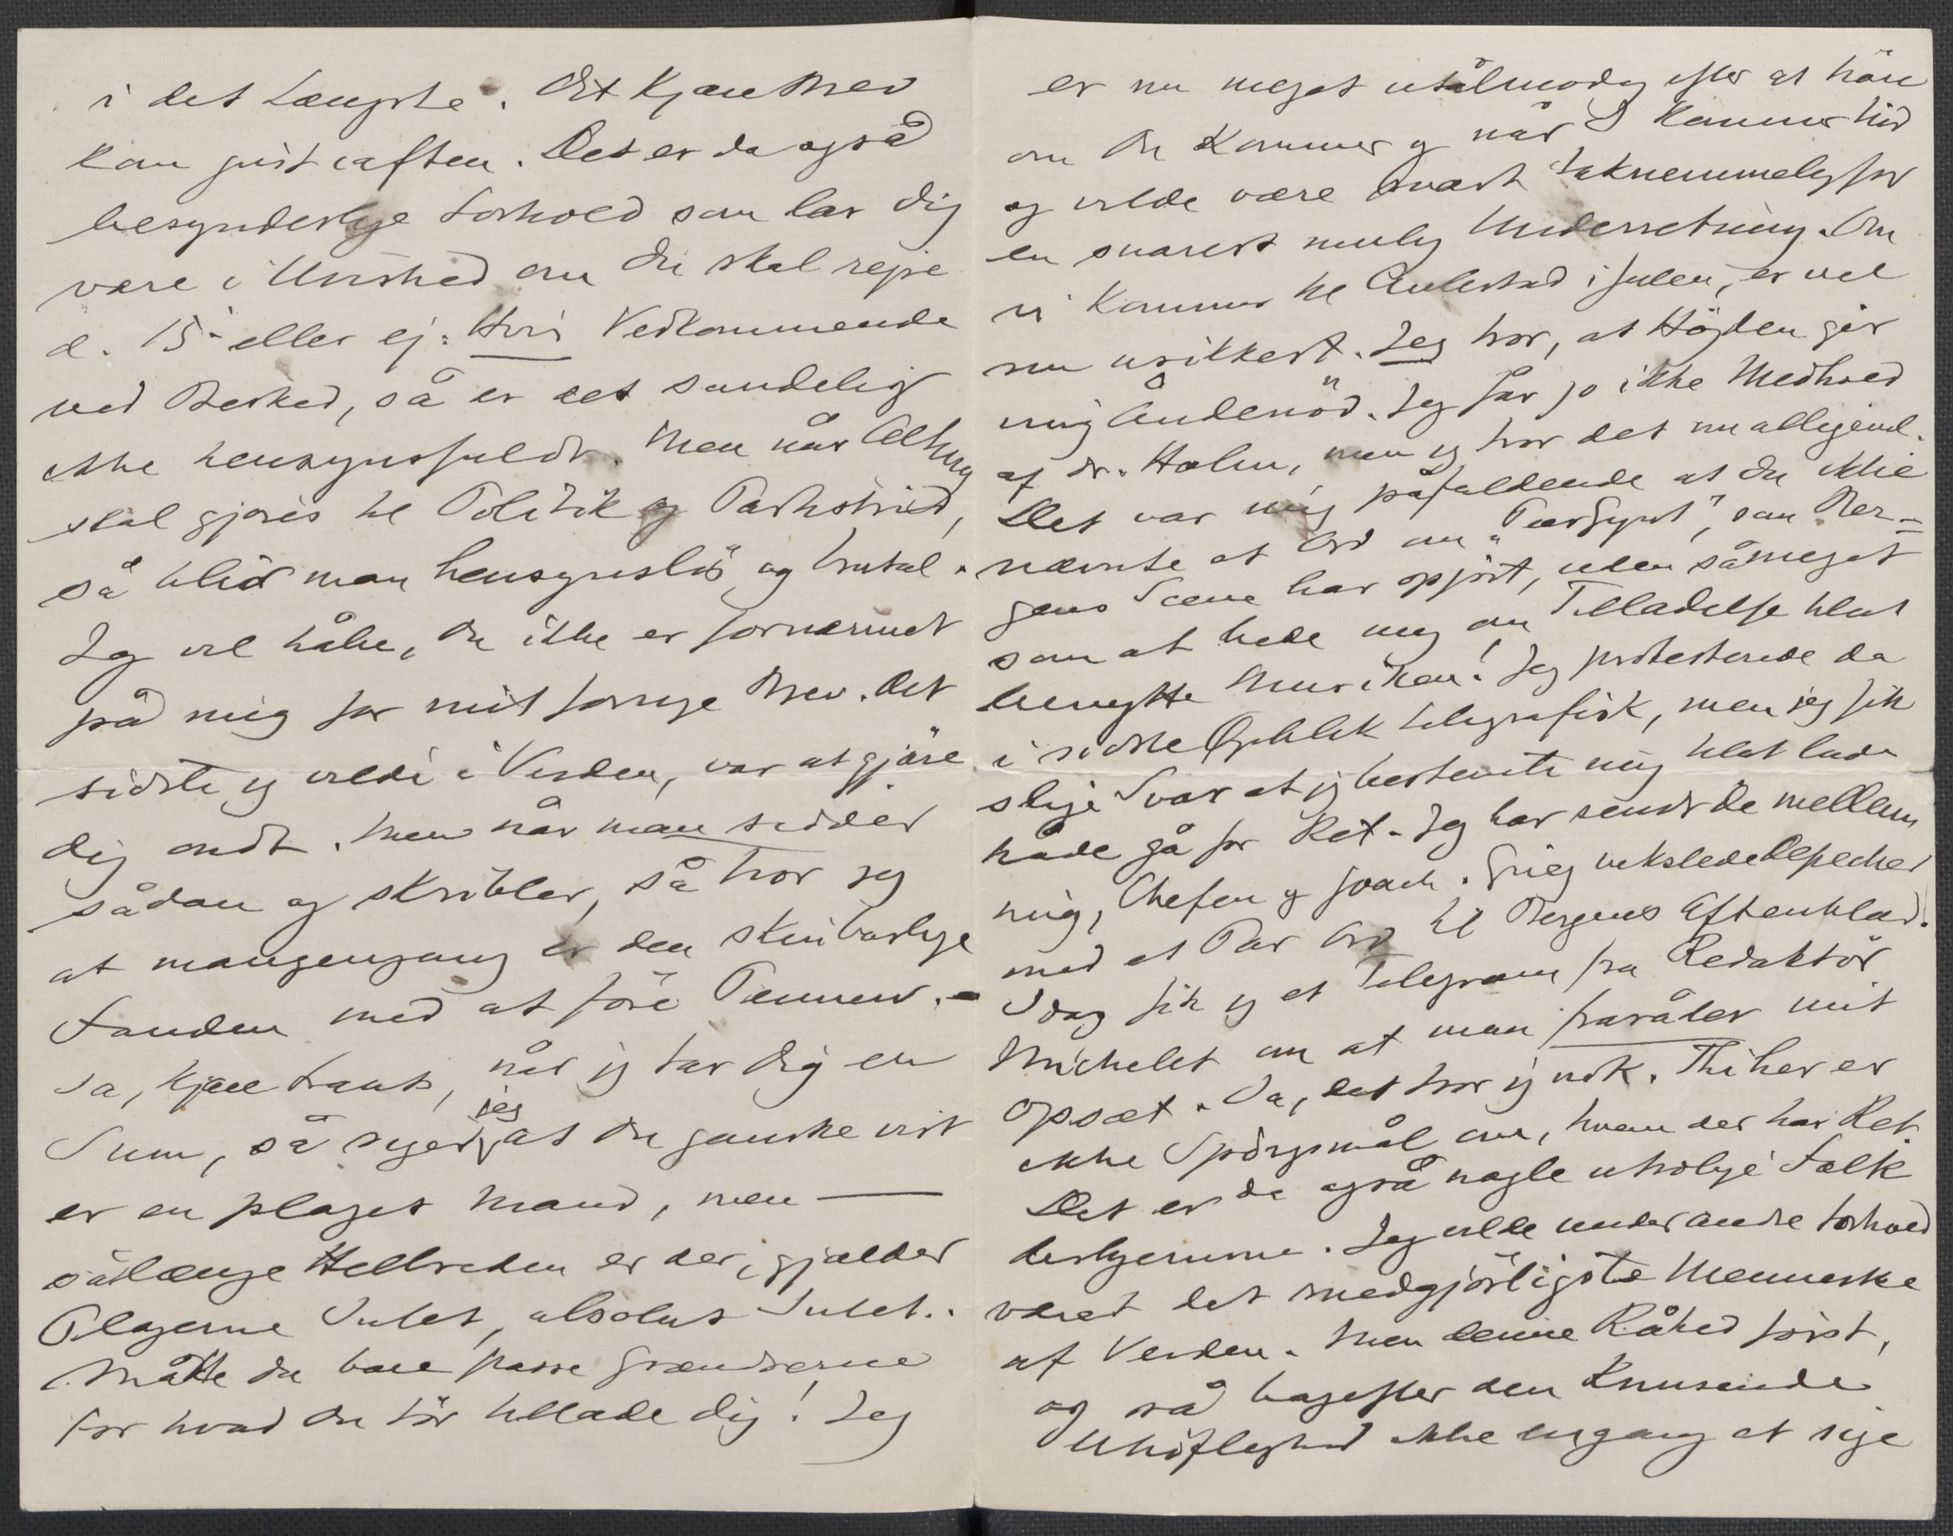 i det Længste. Dit Kjære Brev
kom just iaften. Det er da også
besynderlige Forhold som lar dig
være i Uvished om Du skal rejse
d. 15de eller ej. Hvis Vedkommende
ved Besked, så er det sandelig
ikke hensynsfuldt. Men når Alting
skal gjøres til Politik og Partistrid,
så blir man hensynsløs og brutal.
Jeg vil håbe, Du ikke er fornærmet
på mig for mit forrige Brev. Det
sidste jeg vilde i Verden, var at gjøre
Dig ondt. Men når man sidder
sådan og skribler, så tror jeg
at mangengang er den skinbarlige
Fanden med at føre Pennen. –
Ja, kjære Frants, når jeg tar Dig en
Sum, så siger jeg at Du ganske vist
er en plaget Mand, men —
sålænge Helbreden er der, gjælder
Plagerne Intet, absolut Intet.
Måtte Du bare passe Grændserne
for hvad Du tør tillade Dig! Jeg
er nu meget utålmodig efter at høre
om Du Kommer og når I Kommer hid
og vilde være svært taknemmelig for
en snarest mulig Underretning. Om
vi Kommer til Aulestad i Julen, er vel
nu usikkert. Jeg tror, at Højden gir
mig Åndenød. Jeg får jo ikke Medhold
af Dr. Holm, men jeg tror det nu alligevel.
Det var mig påfaldende at Du ikke
nævnte et Ord om "Peer Gynt", som Ber-
gens Scene har opført, uden såmeget
som at bede mig om Tilladelse til at
benytte Musiken! Jeg protesterede da
i sidste Øjeblik telegrafisk, men jeg fik
slige Svar at jeg bestemte mig til at lade
Nåde gå for Ret. Jeg har sendt de mellem
mig, Chefen og Joach. Grieg vekslede Depecher
med et Par Ord til Bergens Aftenblad.
Idag fik jeg et Telegram fra Redaktør
Michelet om at man fraråder mit
Opsæt. Ja, det tror jeg nok. Thi her er
ikke Spørgsmål om, hvem der har Ret.
Det er da også nogle utrolige Folk
derhjemme. Jeg vilde under andre Forhold
været det medgjørligste Menneske
af Verden. Men denne Råhed først,
og så bagefter den Knusende
Uhøflighed ikke engang at sige